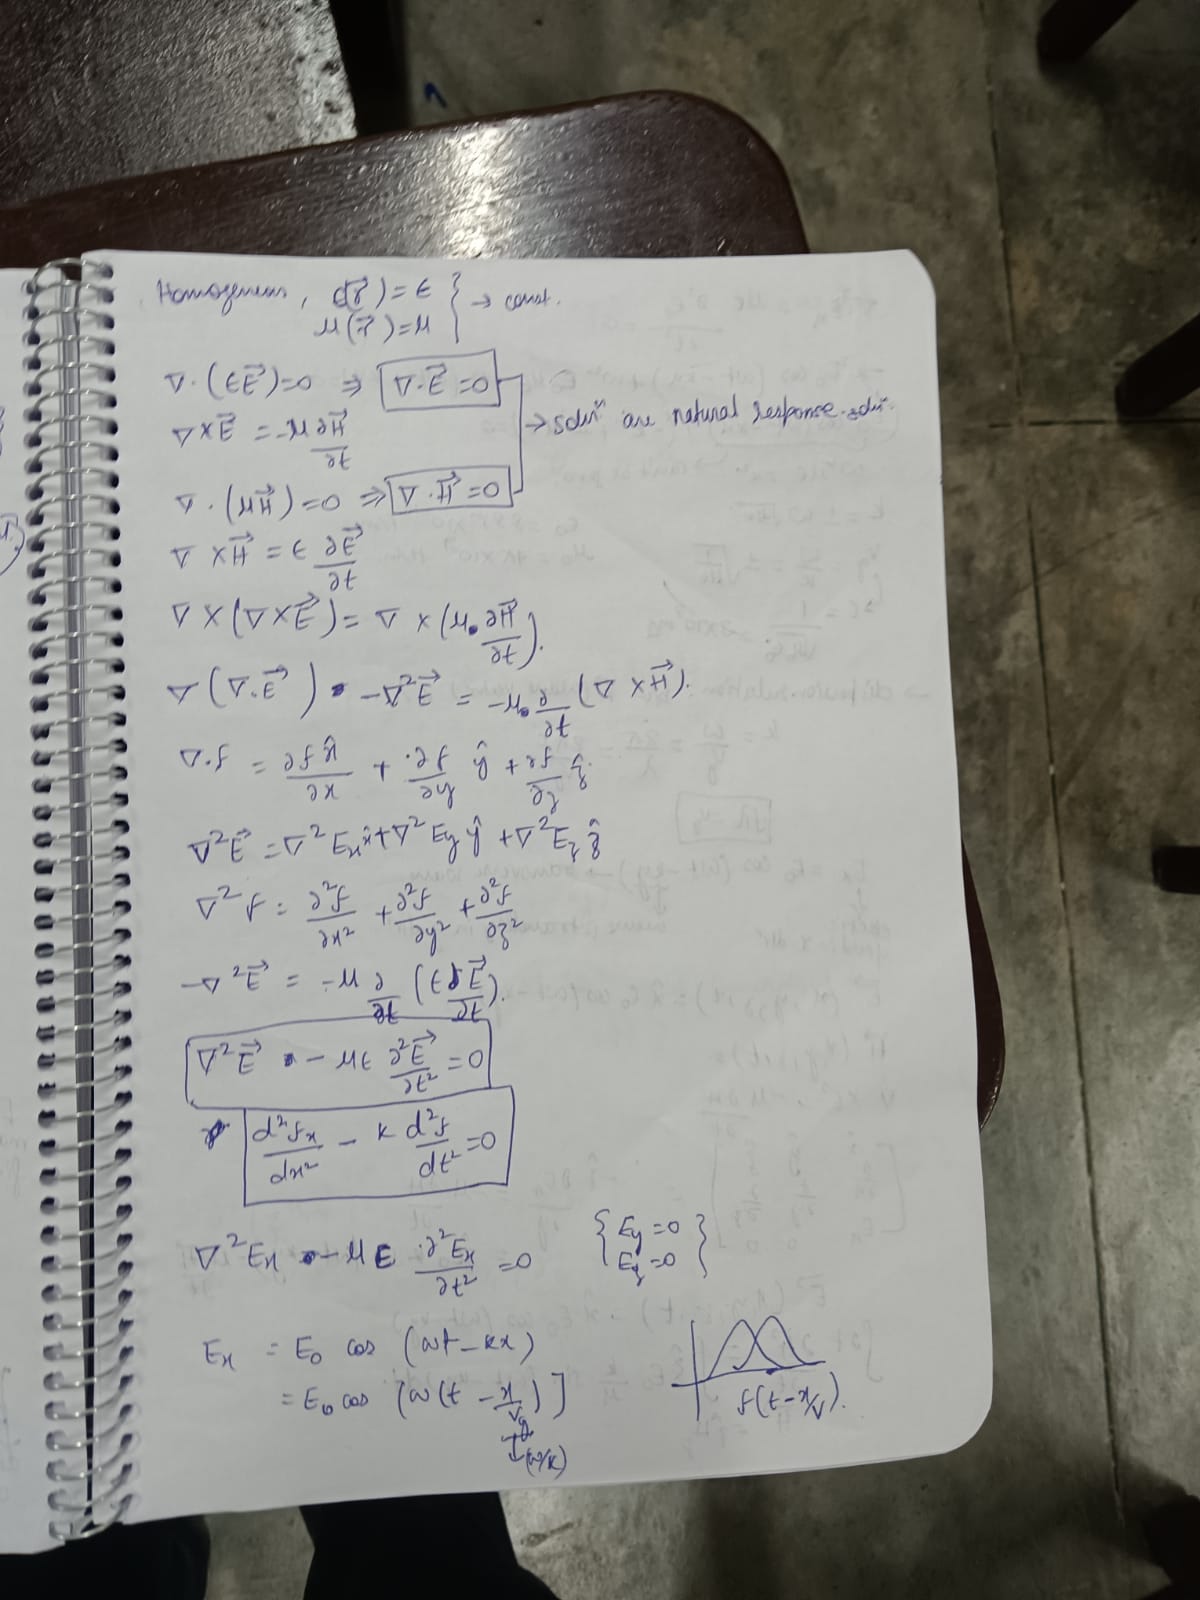 Homogeneous, ϵ(r⃗) = ϵ } → const.
μ(r⃗) = μ
∇·(ϵE⃗) = 0 ⇒ ∇·E⃗ = 0
→ soluⁿ are natural response soluⁿ.
∇×E⃗ = -μ ∂H⃗/∂t
∇·(μH⃗) = 0 ⇒ ∇·H⃗ = 0
∇×H⃗ = ϵ ∂E⃗/∂t
∇×(∇×E⃗) = ∇×(μ ∂H⃗/∂t).
∇(∇·E⃗) - ∇²E⃗ = -μ ∂/∂t (∇×H⃗).
∇·f = ∂f/∂x x̂ + ∂f/∂y ŷ + ∂f/∂z ẑ.
∇²E⃗ = ∇²Ex x̂ + ∇²Ey ŷ + ∇²Ez ẑ
∇²f = ∂²f/∂x² + ∂²f/∂y² + ∂²f/∂z²
-∇²E⃗ = -μ ∂/∂t (ϵ ∂E⃗/∂t).
∇²E⃗ - μϵ ∂²E⃗/∂t² = 0
d²fx/dx² - k d²f/dt² = 0
∇²Ex - μϵ ∂²Ex/∂t² = 0 { Ey = 0
Ez = 0 }
Ex = E₀ cos (ωt - kx)
= E₀ cos [ω(t - x/v)]
(ω/k)
f(t - x/v).